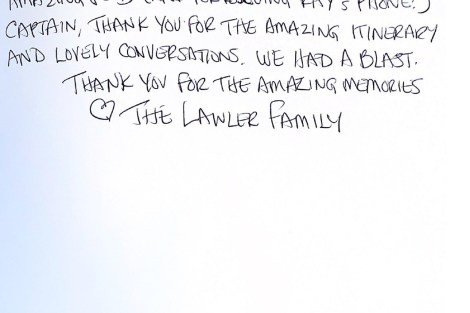 PHONE!)
CAPTAIN, THANK YOU FOR THE AMAZING ITINERARY
AND LOVELY CONVERSATIONS. WE HAD A BLAST.
THANK YOU FOR THE AMAZING MEMORIES
♡ THE LAWLER FAMILY